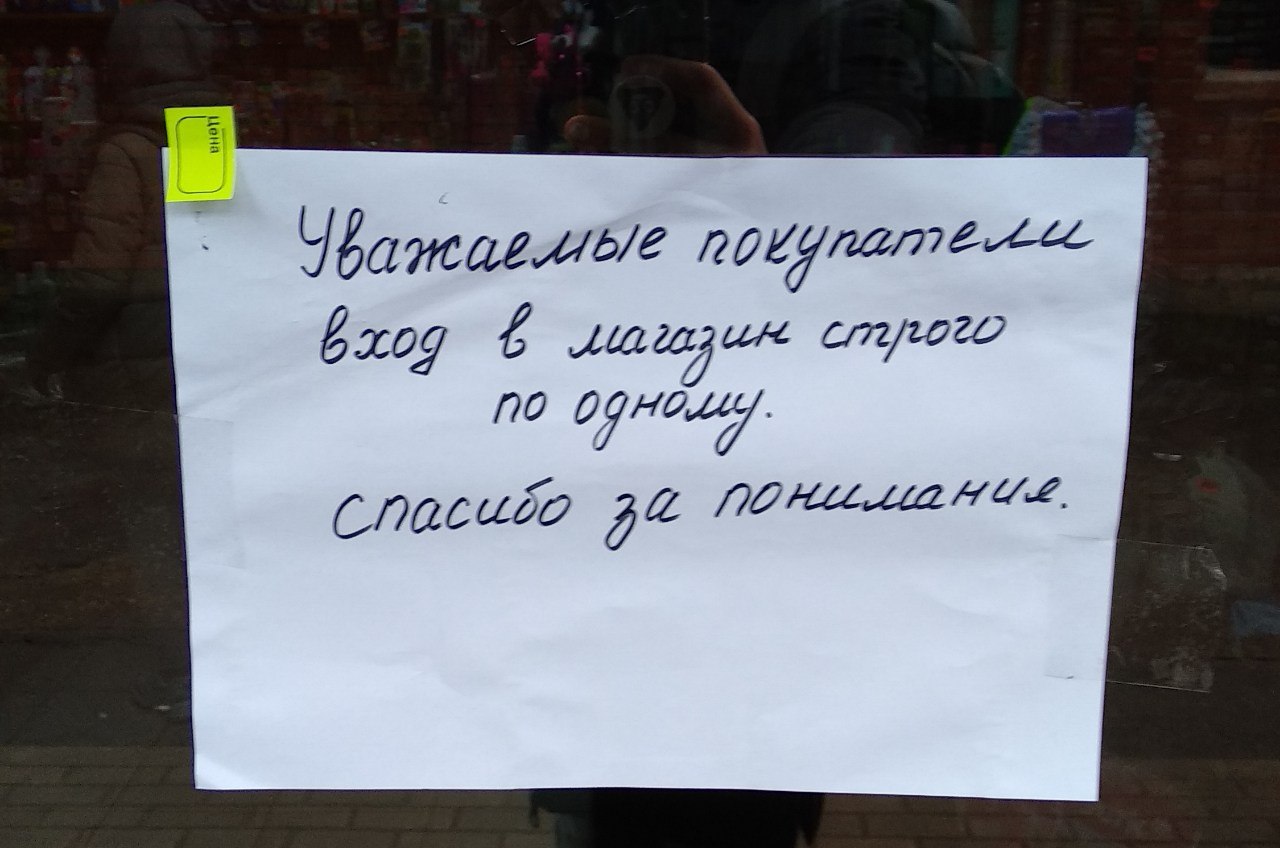 Цена
Уважаемые покупатели
вход в магазин строго
по одному.
спасибо за понимания.